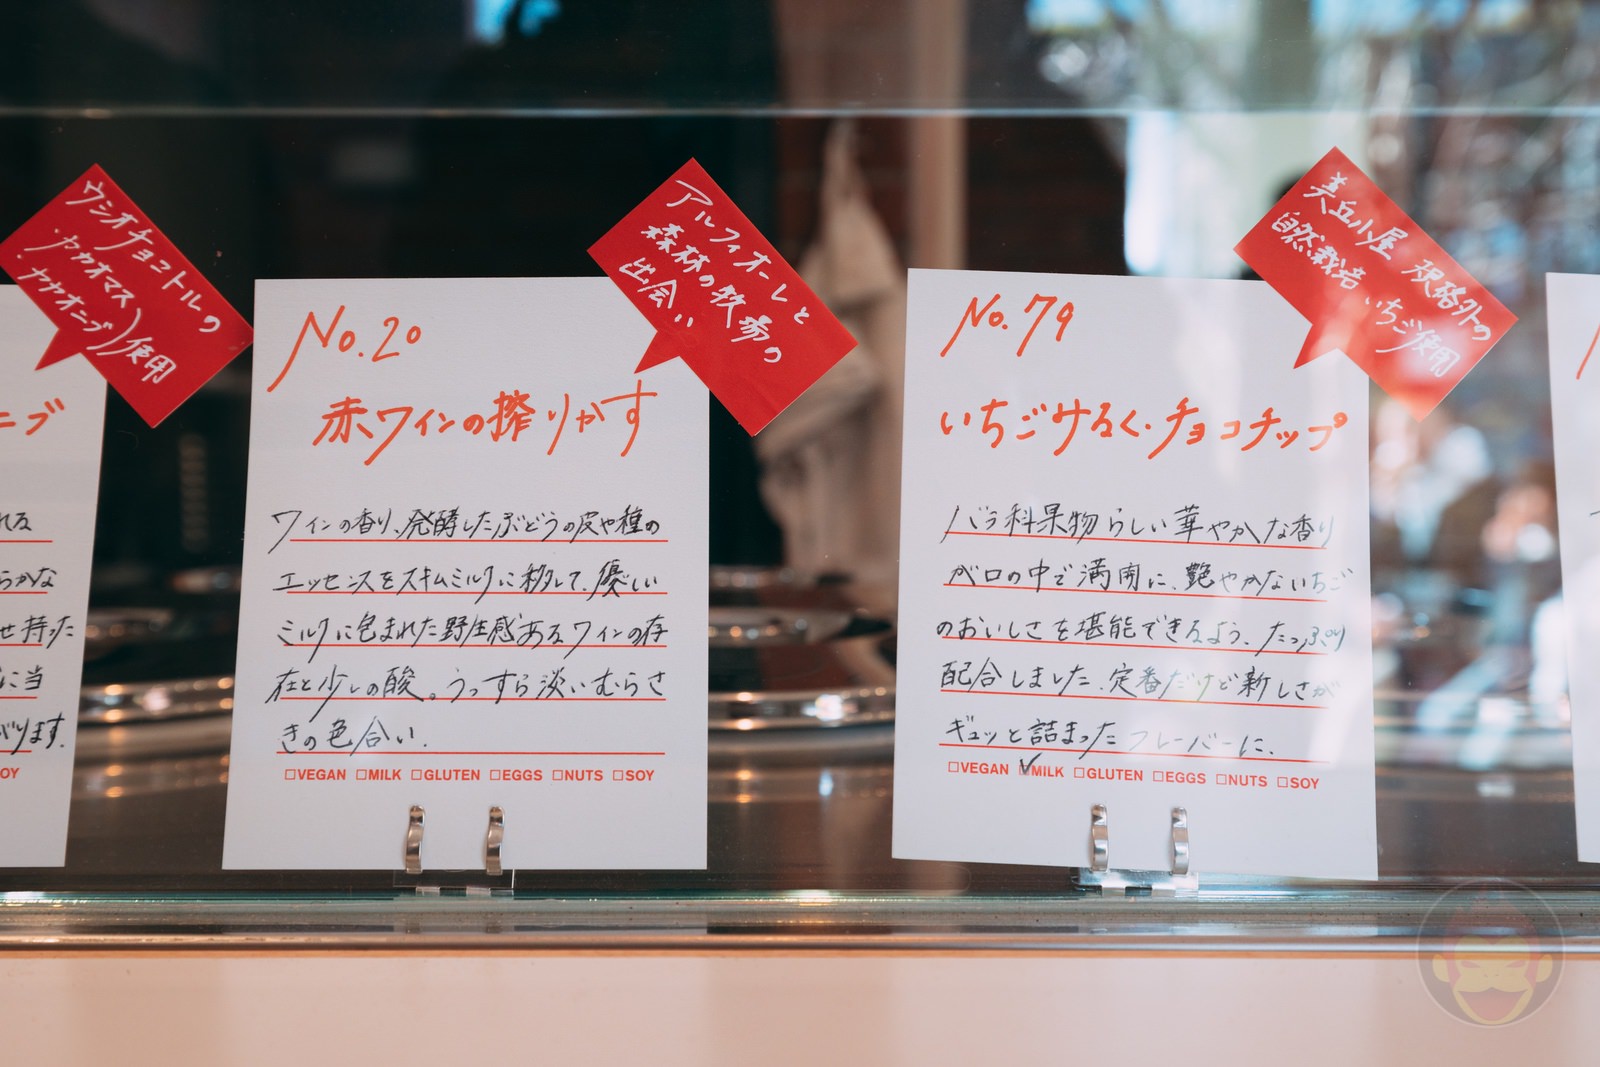 ウシオチョコトルの
・カカオマス
・カカオニブ)使用
ニブ
れる
らかな
せ持った
に当
がります.
OY
アルフィオーレと
森林の牧場の
出会い
No.20
赤ワインの搾りかす
ワインの香り、発酵したぶどうの皮や種の
エッセンスをスキムミルクに移して、優しい
ミルクに包まれた野生感あるワインの存
在と少しの酸。うっすら淡いむらさ
きの色合い.
□VEGAN □MILK □GLUTEN □EGGS □NUTS □SOY
美丘小屋 規格外の
自然栽培いちご使用
No.79
いちごみるく・チョコチップ
バラ科果物らしい華やかな香り
が口の中で満開に、艶やかないちご
のおいしさを堪能できるよう、たっぷり
配合しました、定番だけど新しさが
ギュッと詰まったフレーバーに、
□VEGAN ☑MILK □GLUTEN □EGGS □NUTS □SOY